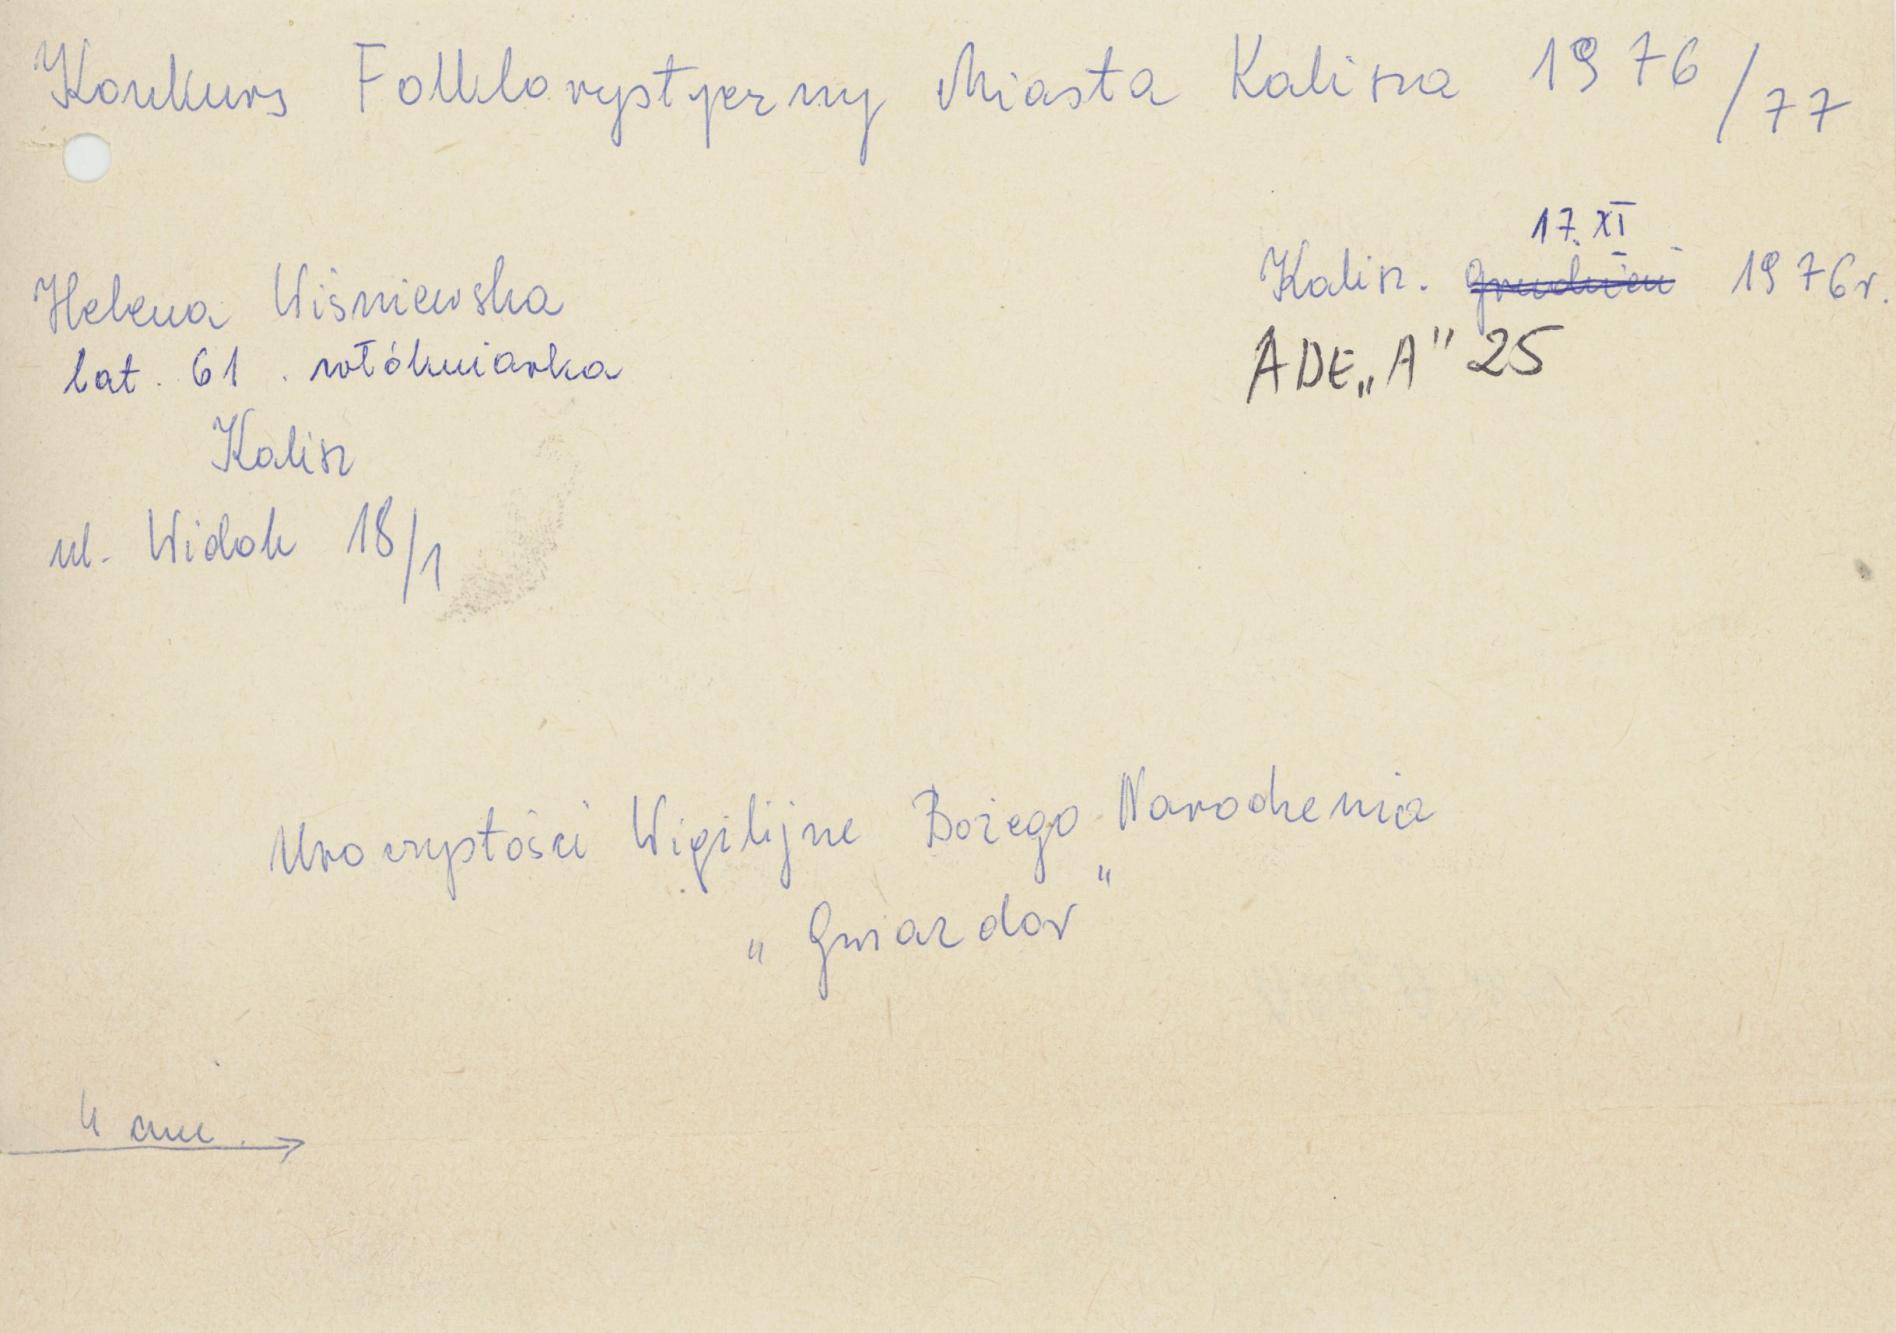 Konkurs Folklorystyczny Miasta Kalisza 1976/77
17. XI
Kalisz. grudzień 1976r.
ADE „A" 25
Helena Wiśniewska
lat. 61. włókniarka
Kalisz
ul. Widok 18/1
Uroczystości Wigilijne Bożego Narodzenia
„Gwiazdor"
4 cm.